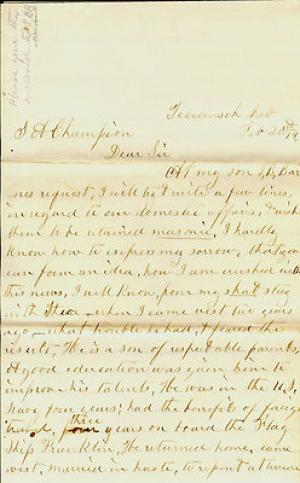 Please give the
enclosed to J.B.B.
Tecumseh Neb
Feb 20th
S A Champion
Dear Sir
At my son J, B, Bar
nes request, I will try & write a few lines,
in regard to our domestic affairs, I wish
them to be retained masonic, I hardly
know how to express my sorrow, that you
can form an idea, how I am crushed with
this news, I well know, from my short stay
with them – when I came west two years
ago, – what trouble he had, & feared the
results, – He is a son of respectable parents,
A good education was given him to
improve his talents, He was in the U.S,
navy four years; had the benefit of foreign
travel, three years on board the Flag
Ship Franklin, He returned home, came
west, married in haste, to repent at leisure